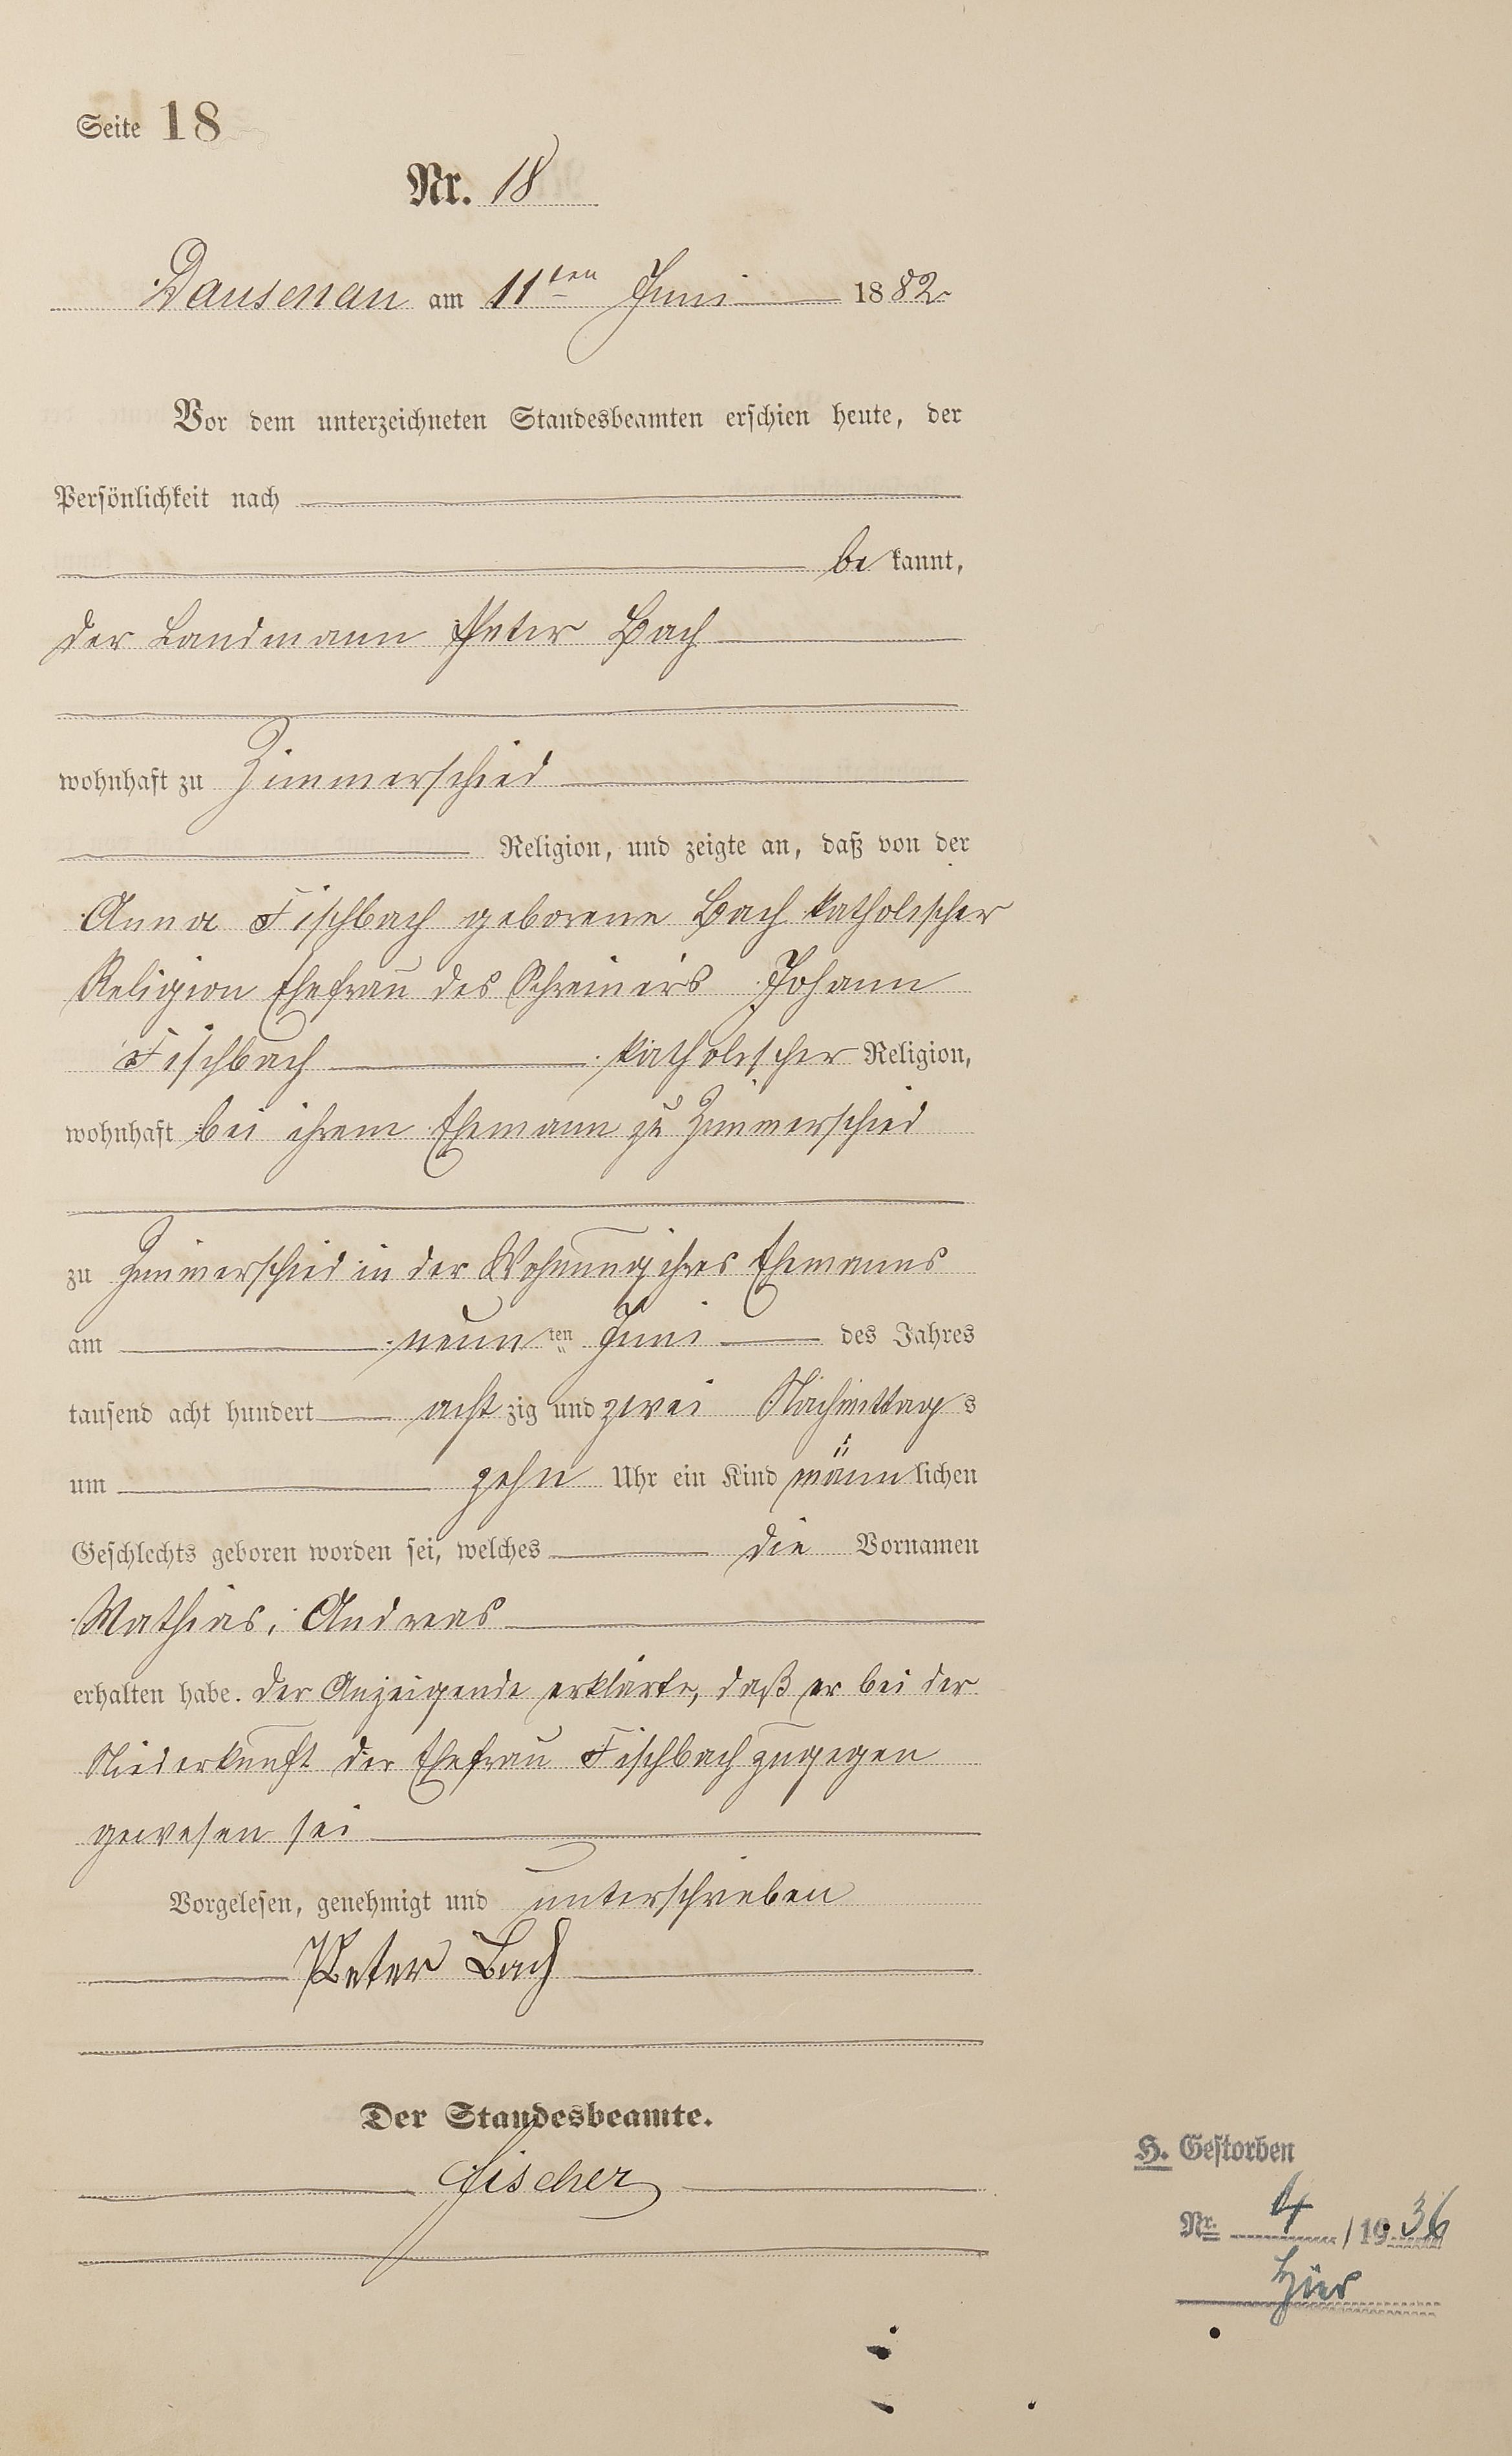 Seite 18
Nr. 18
Dausenau am 11ten Juni 1882
Vor dem unterzeichneten Standesbeamten erschien heute, der
Persönlichkeit nach
be kannt,
der Landmann Peter Bach
wohnhaft zu Zimmerschied
Religion, und zeigte an, daß von der
Anna Fischbach geborene Bach katholischer
Religion Ehefrau des Schreiners Johann
Fischbach katholischer Religion,
wohnhaft bei ihrem Ehemann zu Zimmerschied
zu Zimmerschied in der Wohnung ihres Ehemanns
am neunten Juni des Jahres
tausend acht hundert acht zig und zwei Nachmittags
um zehn Uhr ein Kind männlichen
Geschlechts geboren worden sei, welches die Vornamen
Mathias, Andreas
erhalten habe. Der Anzeigende erklärte, daß er bei der
Niederkunft der Ehefrau Fischbach zugegen
gewesen sei
Vorgelesen, genehmigt und unterschrieben
Peter Bach
Der Standesbeamte.
Fischer
H. Gestorben
Nr. 4 / 1936
hier